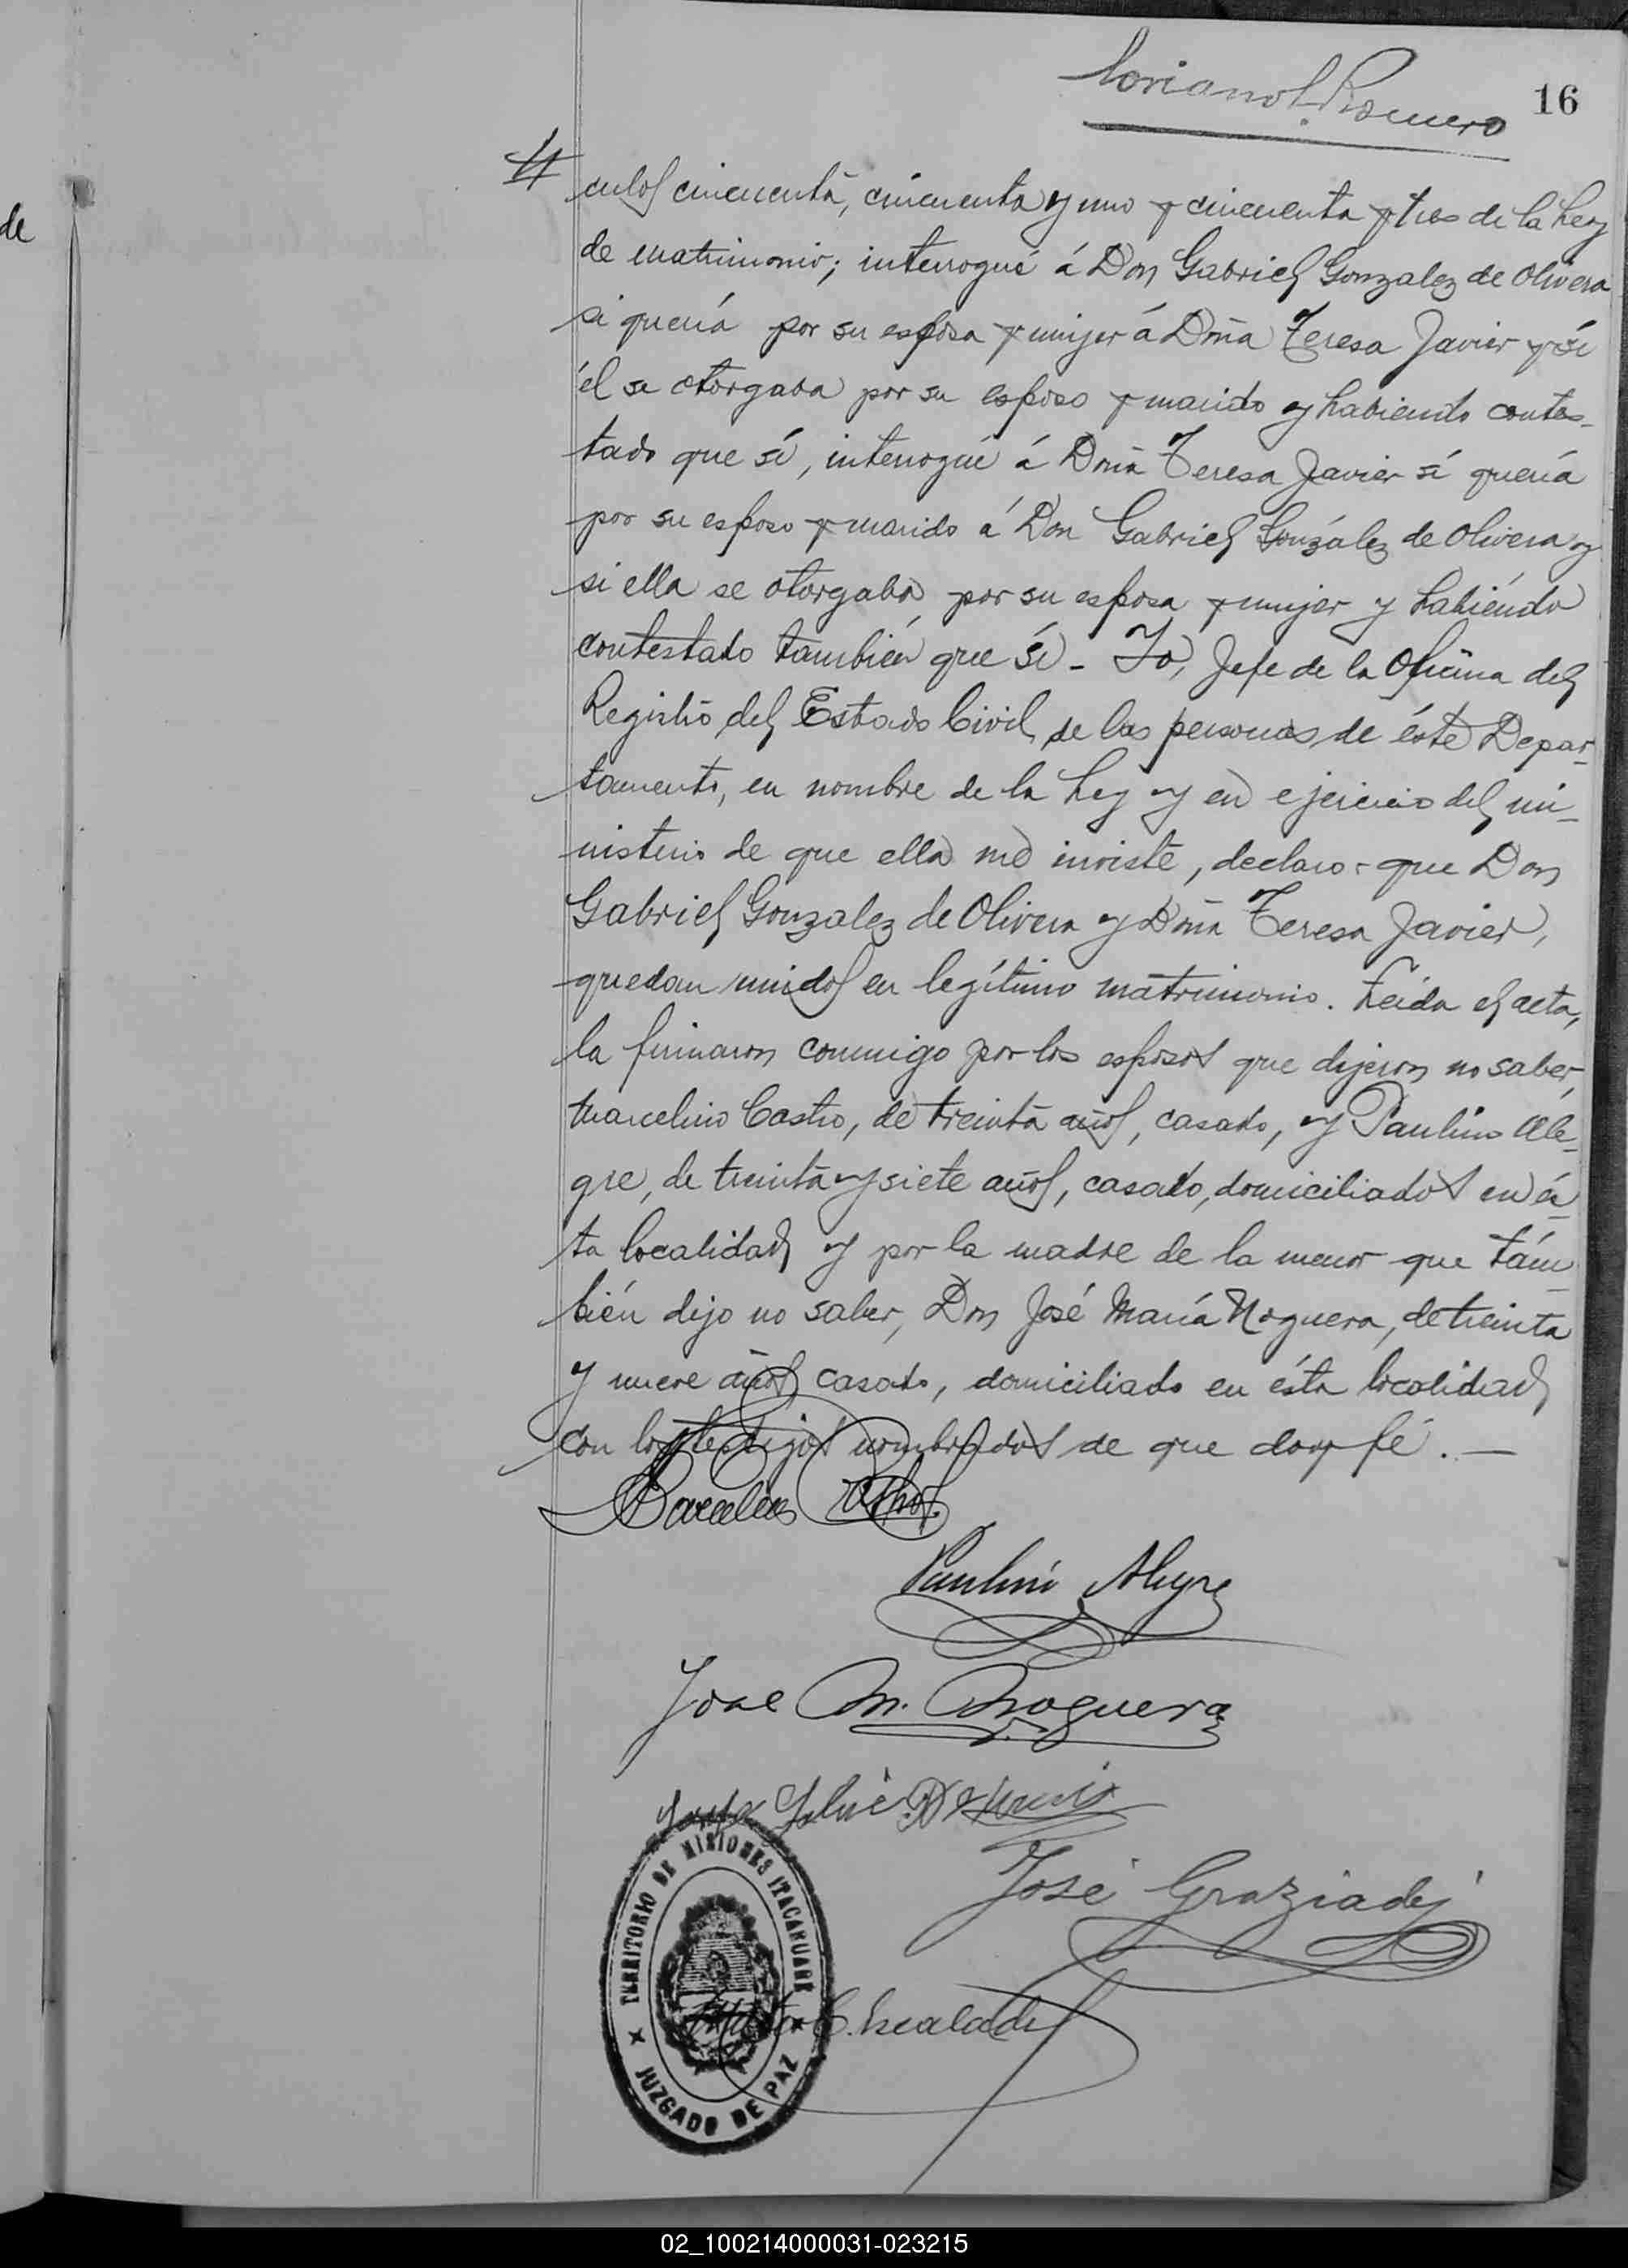 de
Romero
16
culos cincuenta, cincuenta y uno y cincuenta y tres de la Ley
de matrimonio; interrogué á Don Gabriel Gonzalez de Olivera
si quería por su esposa y mujer á Doña Teresa Javier y sí
él se otorgaba por su esposo y marido y habiendo contes-
tado que sí, interrogué á Doña Teresa Javier sí quería
por su esposo y marido á Don Gabriel González de Olivera y
si ella se otorgaba por su esposa y mujer y habiendo
contestado también que sí - Yo, Jefe de la Oficina del
Registro del Estado Civil de las personas de éste Depar-
tamento, en nombre de la Ley y en ejercicio del mi-
nisterio de que ella me inviste, declaro que Don
Gabriel Gonzalez de Olivera y Doña Teresa Javier,
quedan unidos en legítimo matrimonio. Leída el acta,
la firmaron conmigo por los esposos que dijeron no saber,
Marcelino Castro, de treinta años, casado, y Paulino Ale-
gre, de treinta y siete años, casado, domiciliados en és-
ta localidad y por la madre de la menor que tám-
bién dijo no saber, Don José María Noguera, de treinta
y nueve años casado, domiciliado en ésta localidad
con los testigos nombrados de que doy fé. —
Paulino Alegre
Jose M. Noguera
José Graziadej
TERRITORIO DE MISIONES ITACARUARE
JUZGADO DE PAZ
02_100214000031-023215